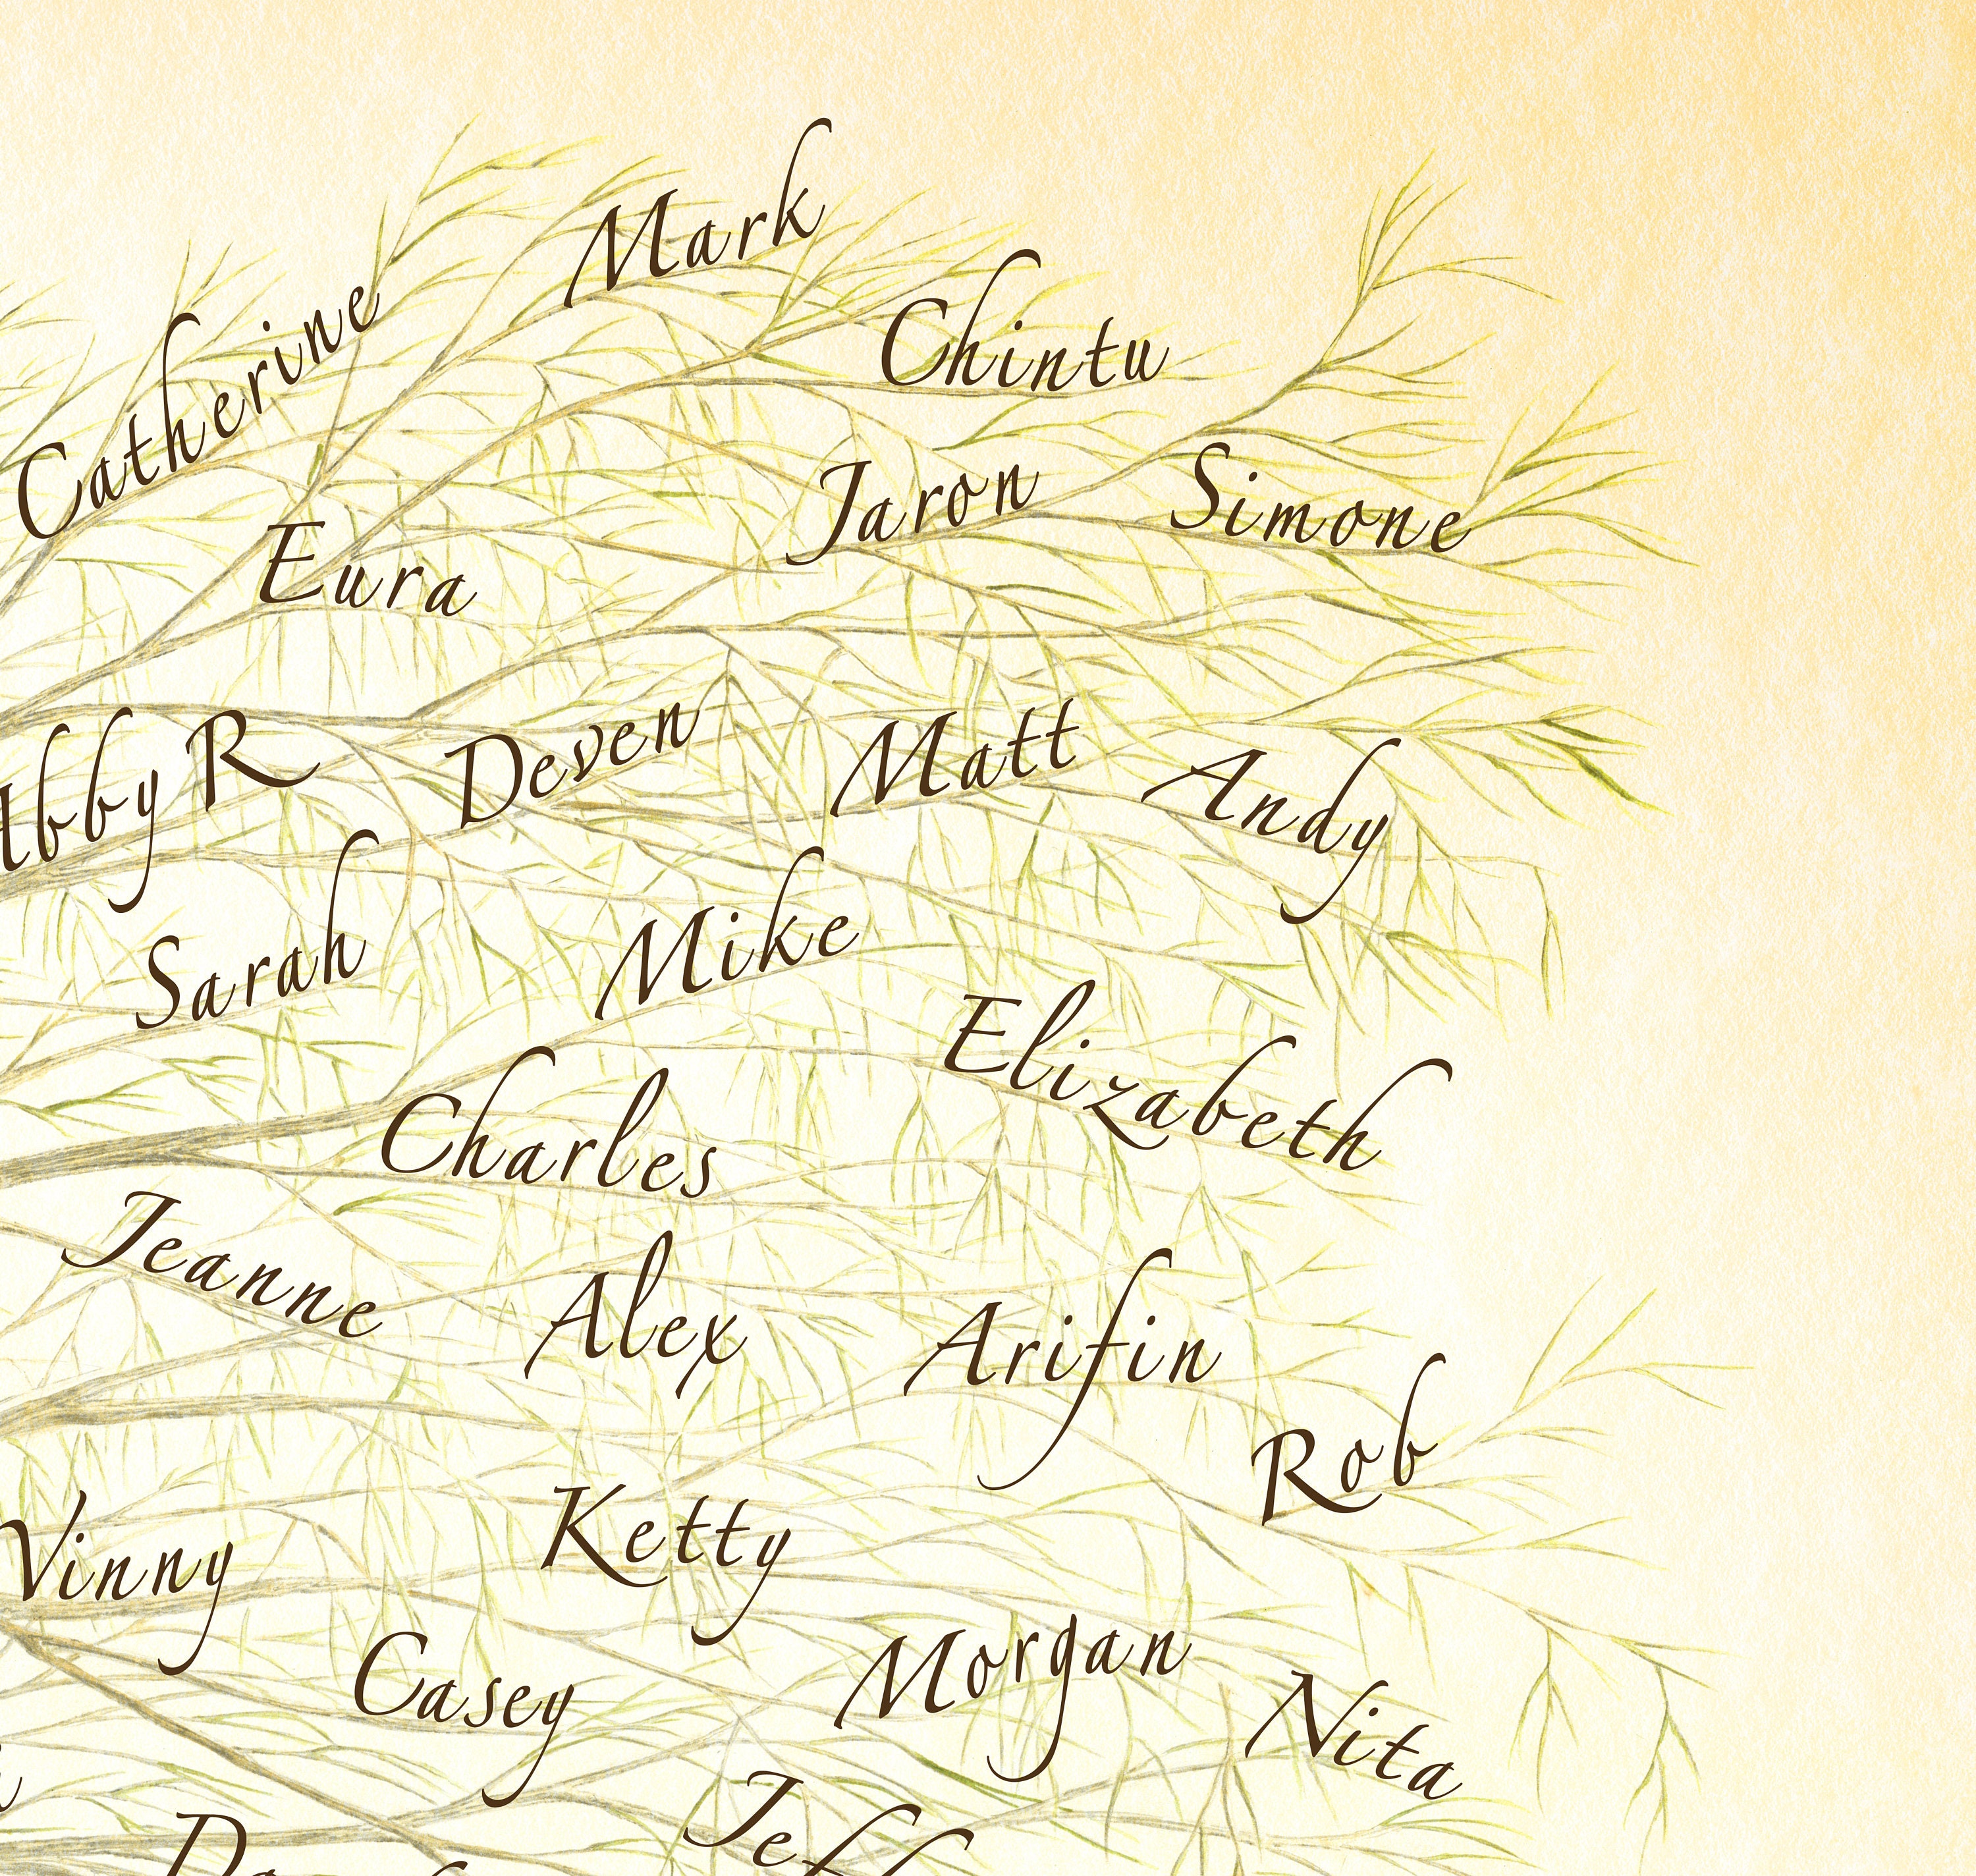 Mark
Catherine
Chintu
Jaron
Simone
Eura
bby R
Deven
Matt
Andy
Sarah
Mike
Elizabeth
Charles
Jeanne
Alex
Arifin
Rob
Vinny
Ketty
Casey
Morgan
Nita
Jeff